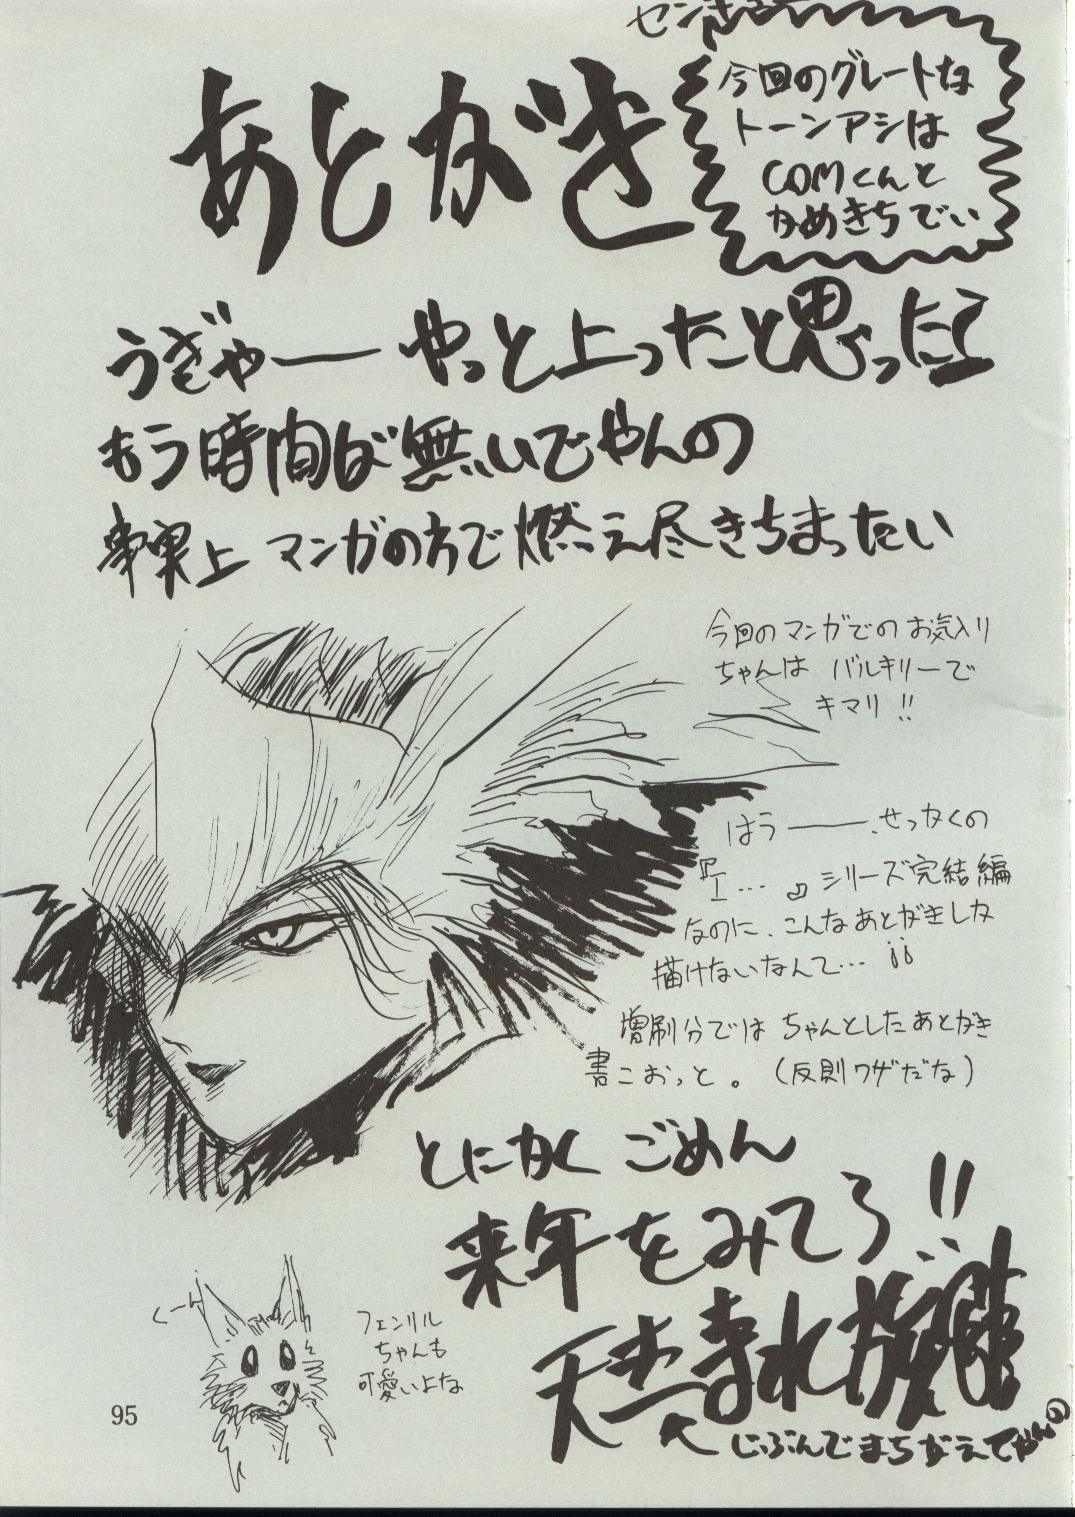 あとがき
今回のグレートな
トーンアシは
COMくんと
かめきちでい
うぎゃー やっと上ったと思ったら
もう時間が無いでやんの
事実上マンガの方で燃え尽きちまったい
今回のマンガでのお気入り
ちゃんは バルキリーで
キマリ!!
はうー、せっかくの
『I…』シリーズ完結編
なのに、こんなあとがきしか
描けないなんて…
増刷分では ちゃんとしたあとがき
書こおっと。(反則ワザだな)
とにかく ごめん
来年をみてろ!!
くーん
フェンリル
ちゃんも
可愛いよな
じぶんでまちがえてやんの
95